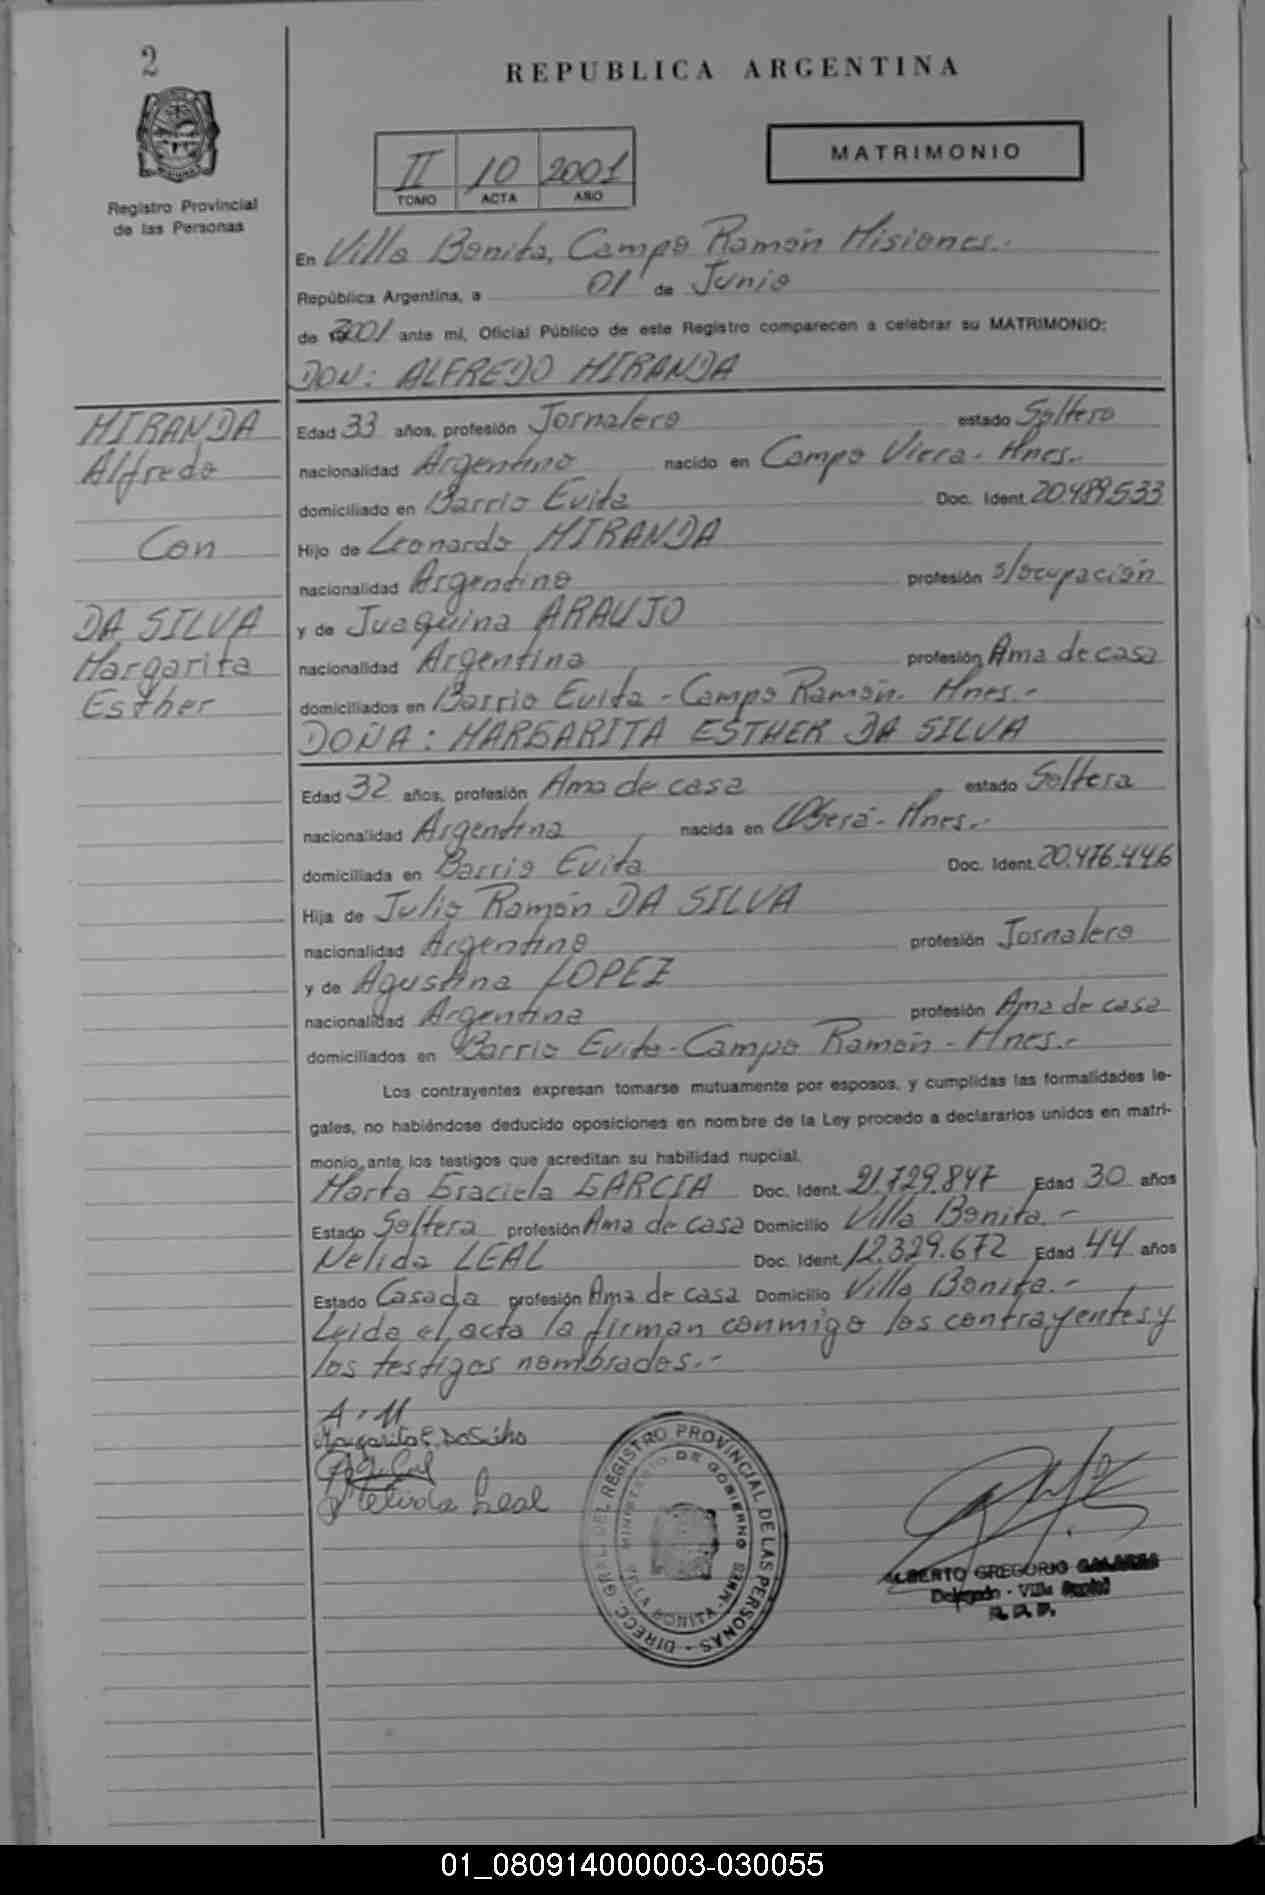 2
REPUBLICA ARGENTINA
Registro Provincial
de las Personas
II 10 2001
TOMO ACTA AÑO
MATRIMONIO
En Villa Bonita, Campo Ramón Misiones.-
República Argentina, a 01 de Junio
de 2001 ante mi, Oficial Público de este Registro comparecen a celebrar su MATRIMONIO:
DON: ALFREDO MIRANDA
MIRANDA
Alfredo
Con
DA SILVA
Margarita
Esther
Edad 33 años, profesión Jornalero estado Soltero
nacionalidad Argentino nacido en Campo Viera - Mnes.-
domiciliado en Barrio Evita Doc. Ident. 20.489.533
Hijo de Leonardo MIRANDA
nacionalidad Argentino profesión s/ocupación
y de Juaquina ARAUJO
nacionalidad Argentina profesión Ama de casa
domiciliados en Barrio Evita - Campo Ramón - Mnes.-
DOÑA: MARGARITA ESTHER DA SILVA
Edad 32 años, profesión Ama de casa estado Soltera
nacionalidad Argentina nacida en Oberá - Mnes.-
domiciliada en Barrio Evita Doc. Ident. 20.476.446
Hija de Julio Ramón DA SILVA
nacionalidad Argentino profesión Jornalero
y de Agustina LOPEZ
nacionalidad Argentina profesión Ama de casa
domiciliados en Barrio Evita - Campo Ramón - Mnes.-
Los contrayentes expresan tomarse mutuamente por esposos, y cumplidas las formalidades le-
gales, no habiéndose deducido oposiciones en nombre de la Ley procedo a declararlos unidos en matri-
monio, ante los testigos que acreditan su habilidad nupcial.
Marta Graciela GARCIA Doc. Ident. 21.729.847 Edad 30 años
Estado Soltera profesión Ama de casa Domicilio Villa Bonita.-
Nelida LEAL Doc. Ident. 12.329.672 Edad 44 años
Estado Casada profesión Ama de casa Domicilio Villa Bonita.-
Leida el acta la firman conmigo los contrayentes y
los testigos nombrados.-
A . M
Margarita E. DaSilva
Nelida Leal
DIRECC. GRAL. DEL REGISTRO PROVINCIAL DE LAS PERSONAS -
MINISTERIO DE GOBIERNO
VILLA BONITA - MNES
ALBERTO GREGORIO
Delegado - Villa Bonita
R. P. P.
01_080914000003-030055